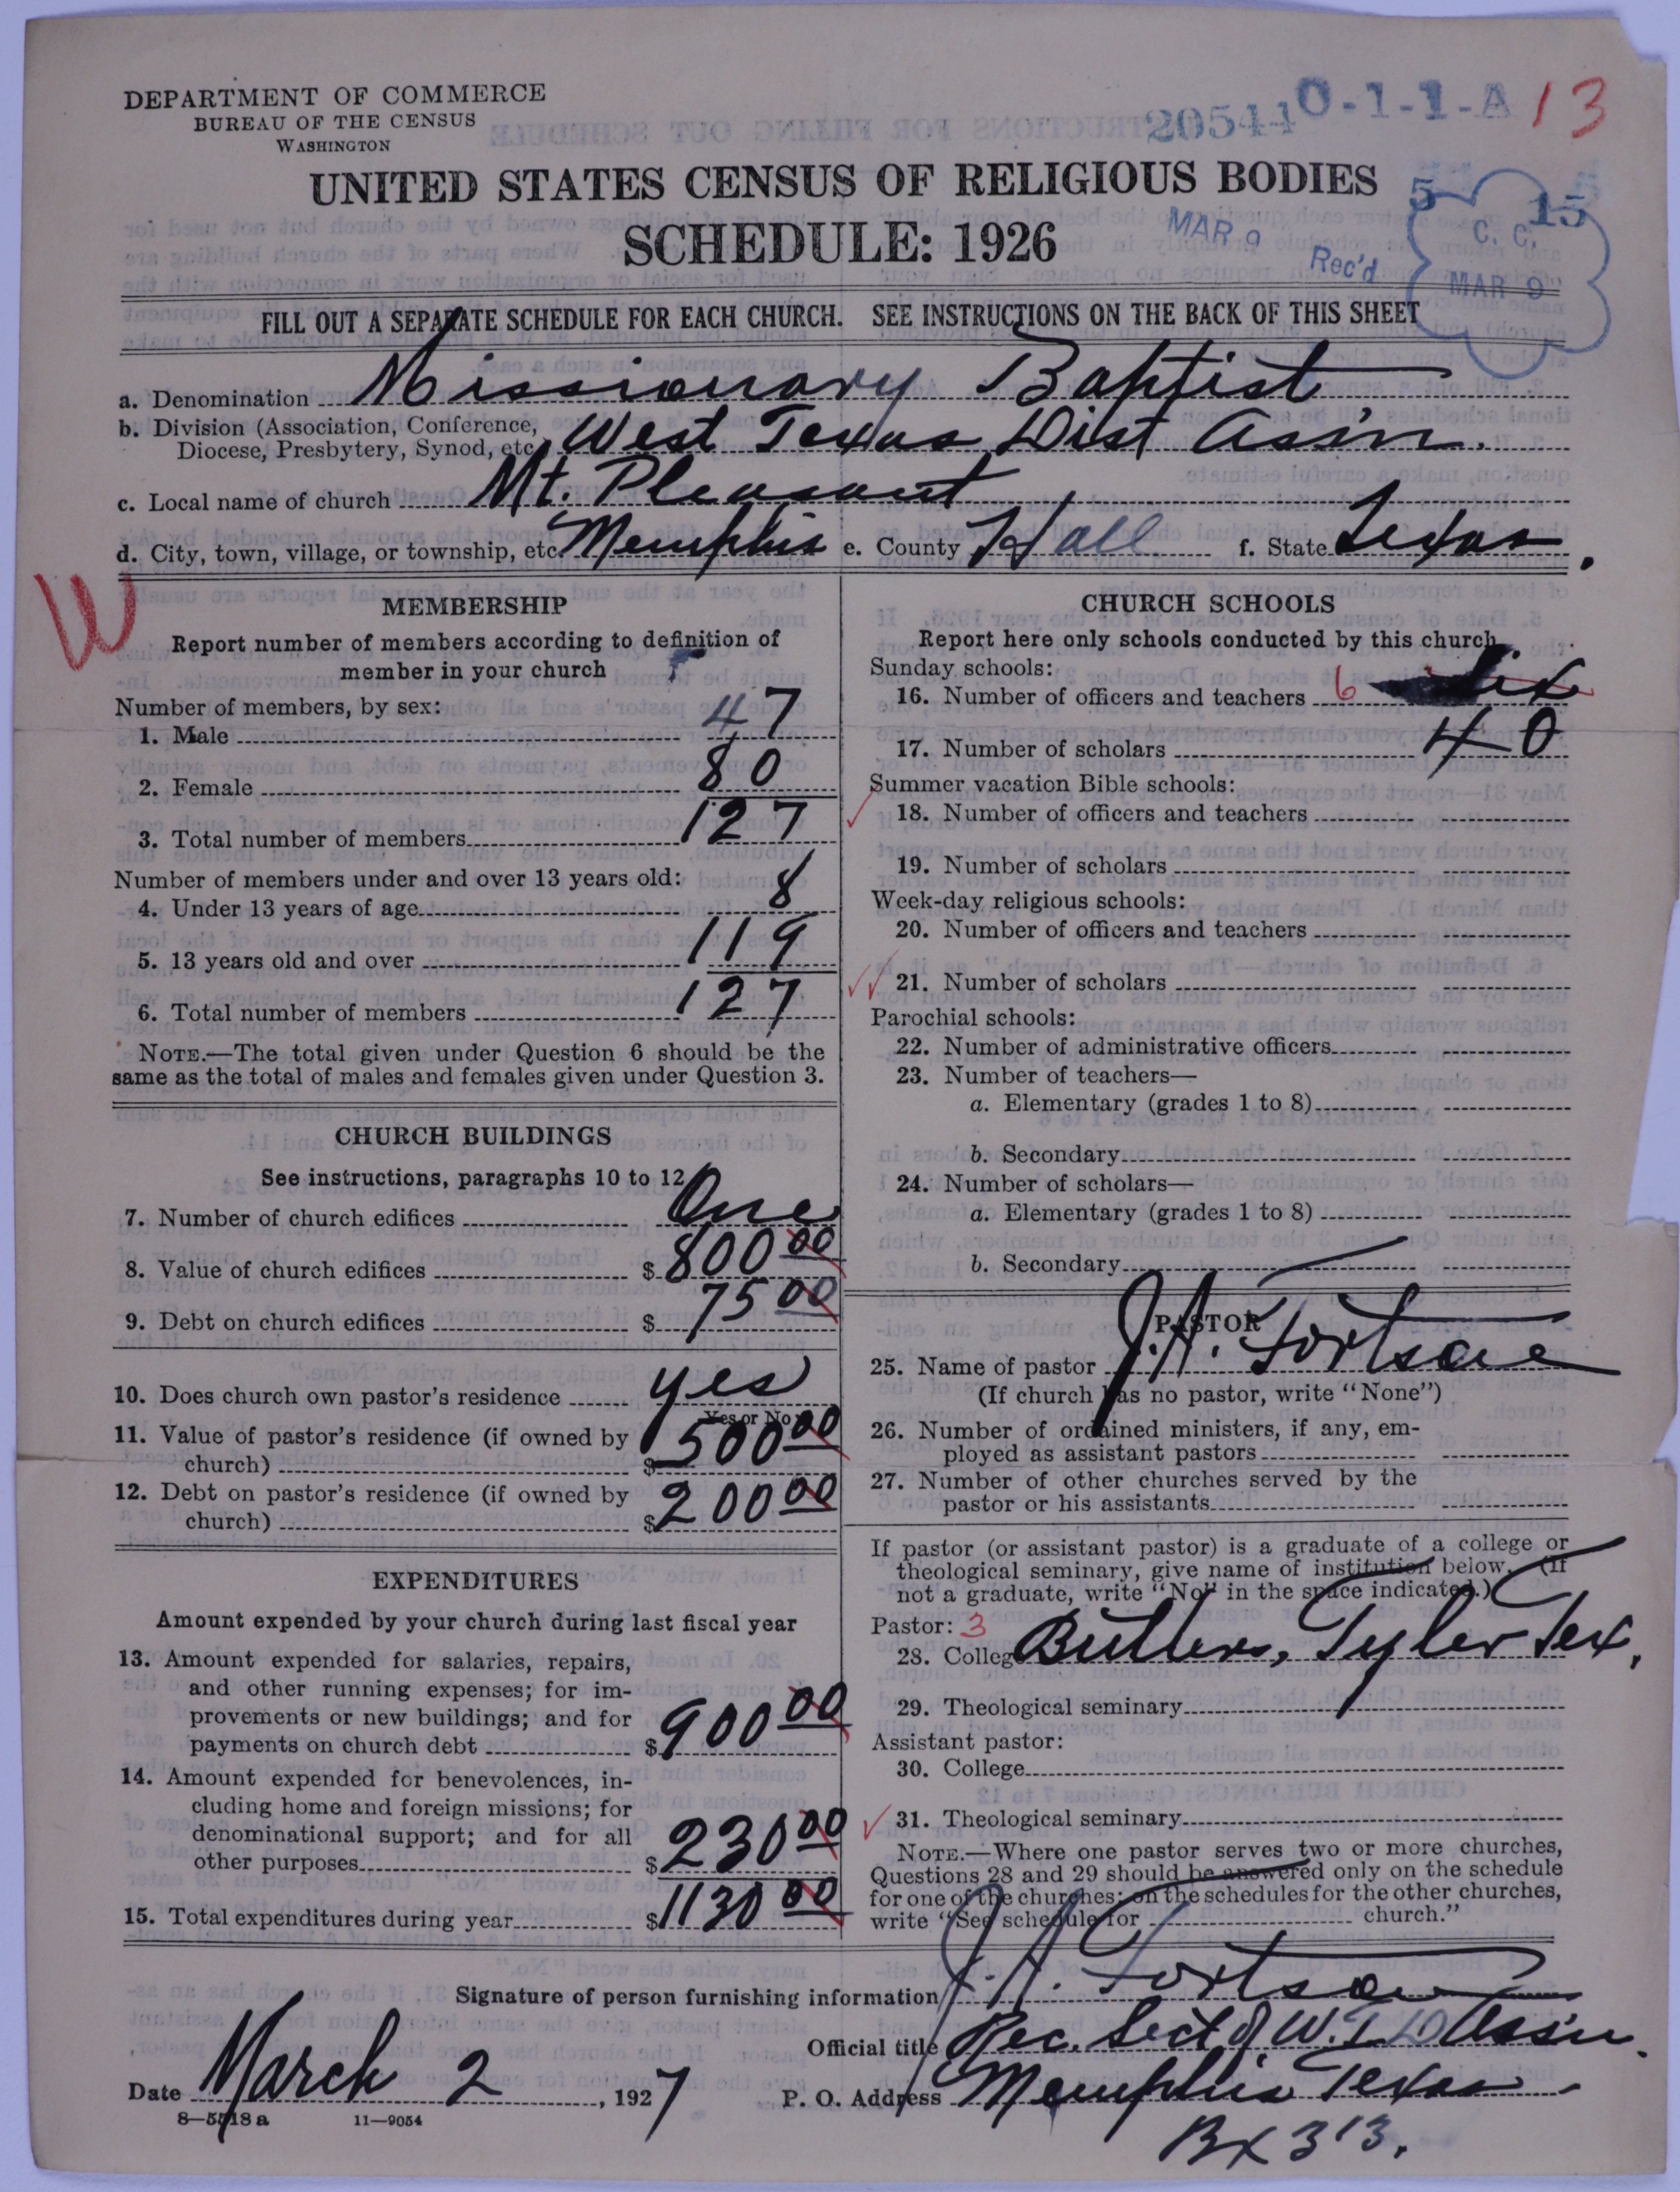 DEPARTMENT OF COMMERCE
BUREAU OF THE CENSUS
WASHINGTON
20544 0-1-1-A 13
UNITED STATES CENSUS OF RELIGIOUS BODIES
SCHEDULE: 1926
MAR 9 Rec'd
5 15
C. C.
MAR 9
FILL OUT A SEPARATE SCHEDULE FOR EACH CHURCH. SEE INSTRUCTIONS ON THE BACK OF THIS SHEET
a. Denomination Missionary Baptist
b. Division (Association, Conference,
Diocese, Presbytery, Synod, etc. West Texas Dist Assin.
c. Local name of church Mt. Pleasant
d. City, town, village, or township, etc. Memphis e. County Hall f. State Texas.
W
MEMBERSHIP
Report number of members according to definition of
member in your church
Number of members, by sex:
1. Male 47
2. Female 80
3. Total number of members 127
Number of members under and over 13 years old:
4. Under 13 years of age 8
5. 13 years old and over 119
6. Total number of members 127
NOTE.—The total given under Question 6 should be the
same as the total of males and females given under Question 3.
CHURCH BUILDINGS
See instructions, paragraphs 10 to 12
7. Number of church edifices One
8. Value of church edifices $ 800 00
9. Debt on church edifices $ 75 00
10. Does church own pastor's residence yes
Yes or No
11. Value of pastor's residence (if owned by
church) $ 500 00
12. Debt on pastor's residence (if owned by
church) $ 200 00
EXPENDITURES
Amount expended by your church during last fiscal year
13. Amount expended for salaries, repairs,
and other running expenses; for im-
provements or new buildings; and for
payments on church debt $ 900 00
14. Amount expended for benevolences, in-
cluding home and foreign missions; for
denominational support; and for all
other purposes $ 230 00
15. Total expenditures during year $ 1130 00
CHURCH SCHOOLS
Report here only schools conducted by this church
Sunday schools:
16. Number of officers and teachers 6 Six
17. Number of scholars 40
Summer vacation Bible schools:
18. Number of officers and teachers
19. Number of scholars
Week-day religious schools:
20. Number of officers and teachers
21. Number of scholars
Parochial schools:
22. Number of administrative officers
23. Number of teachers—
a. Elementary (grades 1 to 8)
b. Secondary
24. Number of scholars—
a. Elementary (grades 1 to 8)
b. Secondary
PASTOR
25. Name of pastor J. A. Fortson
(If church has no pastor, write "None")
26. Number of ordained ministers, if any, em-
ployed as assistant pastors
27. Number of other churches served by the
pastor or his assistants
If pastor (or assistant pastor) is a graduate of a college or
theological seminary, give name of institution below. (If
not a graduate, write "No" in the space indicated.)
Pastor: 3
28. College Butlers, Tyler Tex.
29. Theological seminary
Assistant pastor:
30. College
31. Theological seminary
NOTE.—Where one pastor serves two or more churches,
Questions 28 and 29 should be answered only on the schedule
for one of the churches; on the schedules for the other churches,
write "See schedule for church."
Signature of person furnishing information J. A. Fortson
Official title Rec. Sect of W. T. D Ass'n.
Date March 2, 1927 P. O. Address Memphis Texas
8—5518 a 11—9054
Bx 313.